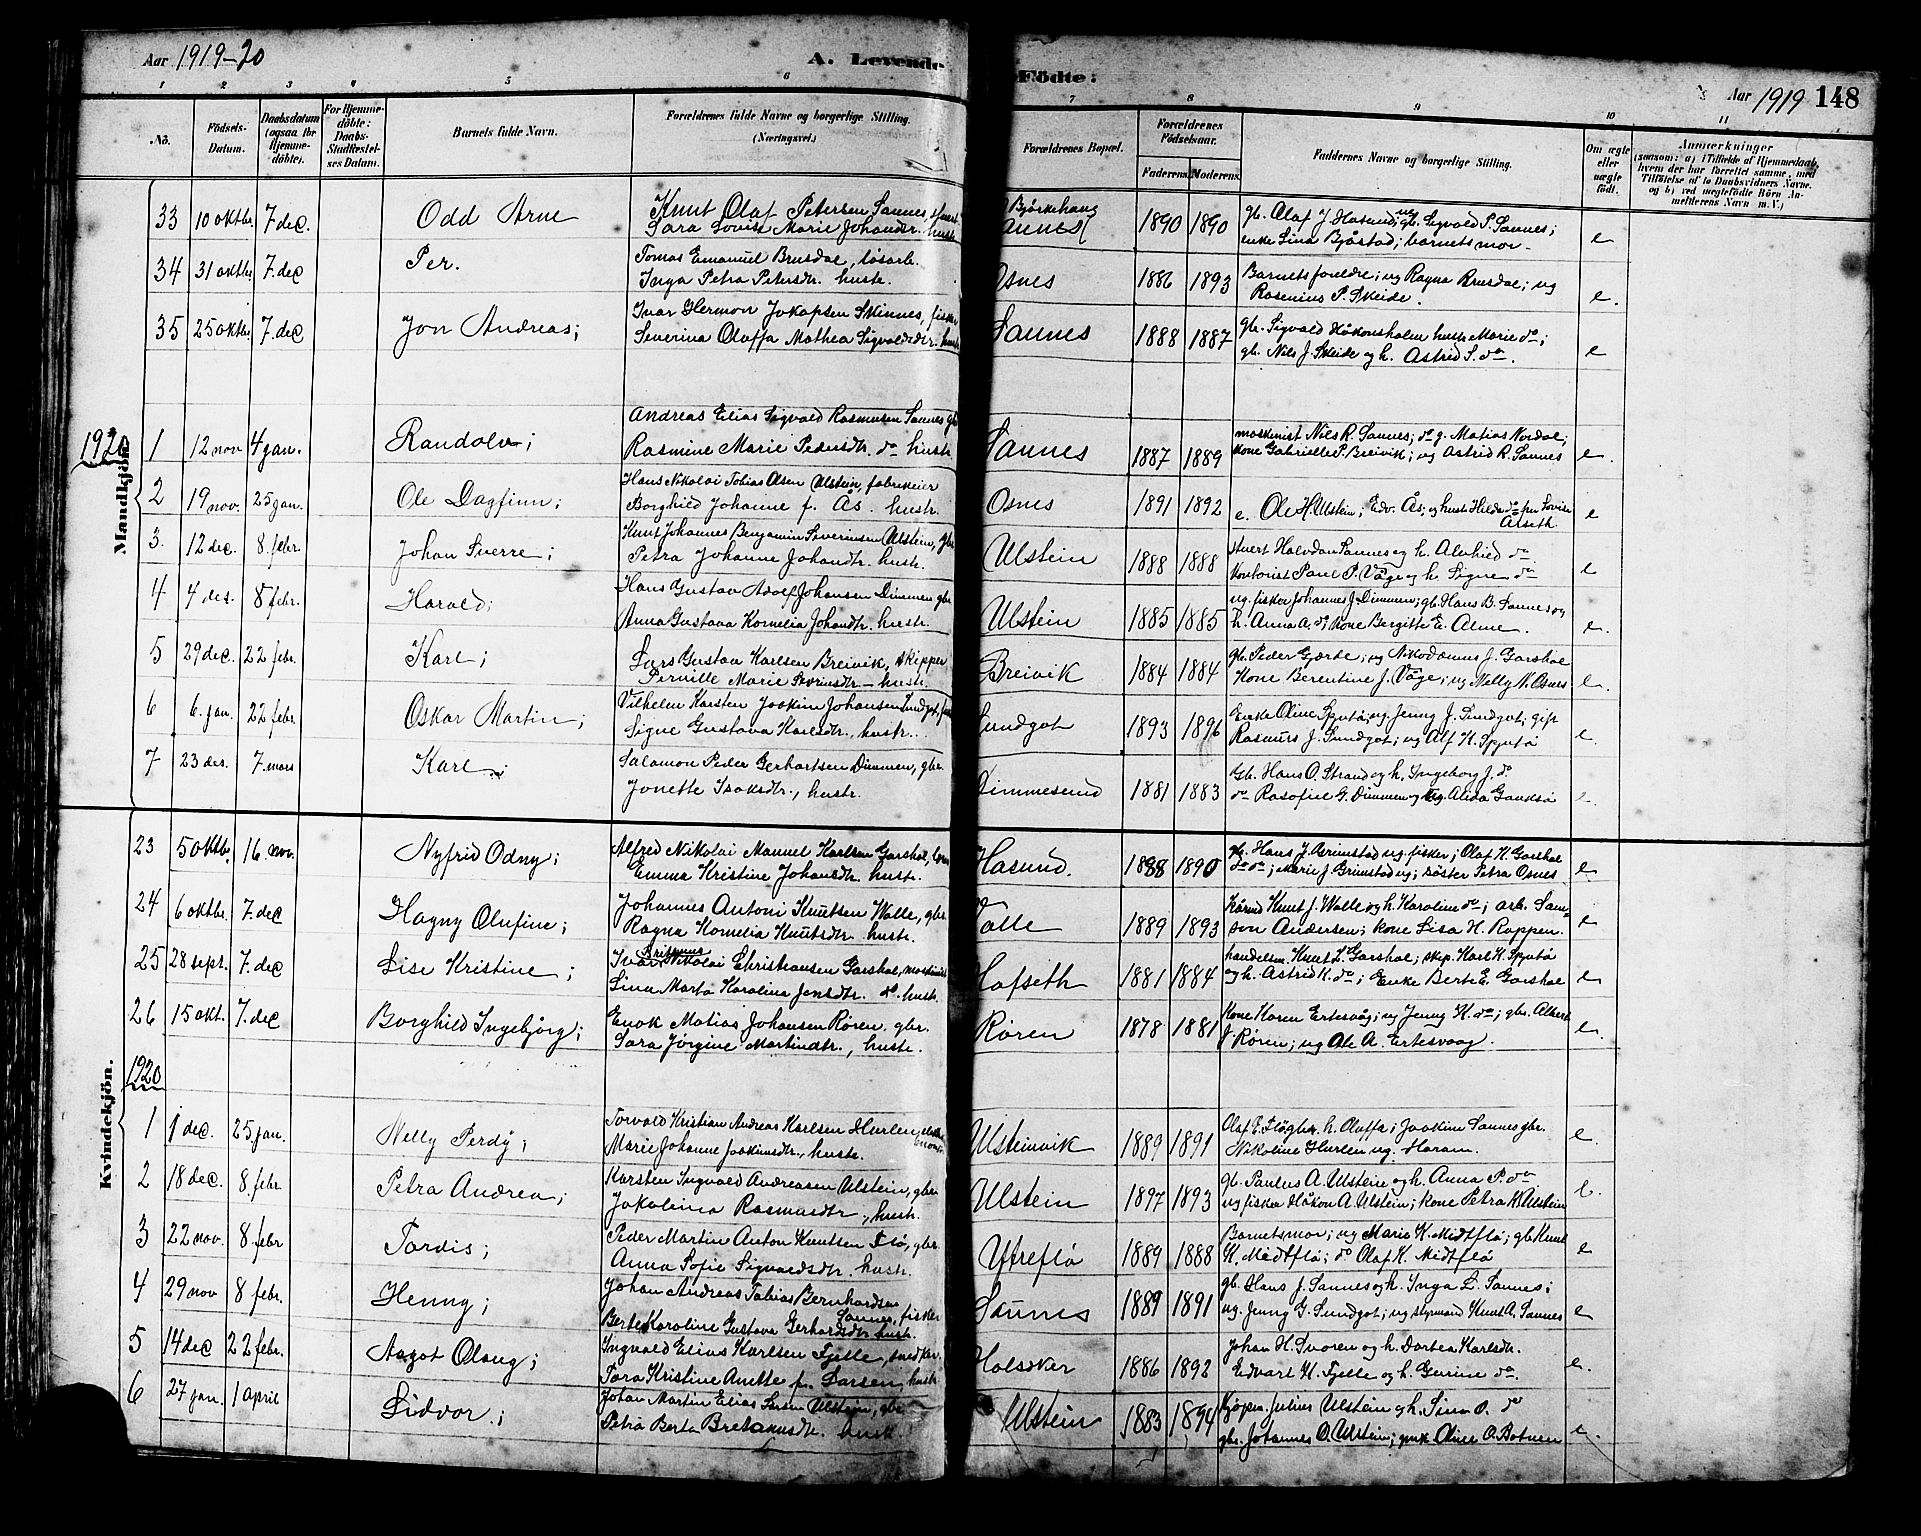 Aar 1919-20
A. Levende
Födte:
Aar 1919
148
1 2 3 4 5 6 7 8 9 10 11
No.
Födsels-Datum.
Daabsdatum (ogsaa for Hjemmedöbte).
For Hjemmedöbte: Daabs-Stadfæstelses Datum.
Barnets fulde Navn.
Forældrenes fulde Navne og borgerlige Stilling. (Næringsvei.)
Forældrenes Bopæl.
Forældrenes Födselsaar.
Faderens. Moderens.
Faddernes Navne og borgerlige Stilling.
Om ægte eller uægte födt.
Anmærkninger
(saasom: a) i Tilfælde af Hjemmedaab, hvem der har forrettet samme, med Tilföielse af to Daabsvidners Navne. og b) ved uægtefödte Börn Anmelderens Navn m. V.)
33 10 oktbr. 7 dec. Odd Arne
Knut Olaf Petersen Sannes,
Sara Lovise Marie Johansdr. hustr.
Bjørkehaug Sannes 1890 1890
gb. Olaf J. Hasund; ug. gb. Sigvald P. Sannes;
enke Lina Bjåstad; barnets mor - e
34 31 oktbr. 7. dec Per.
Tomas Emanuel Brusdal, løsarb.
Inga Petra Petersdtr. hustr.
Osnes 1886 1893
Barnets foreldre; ug Ragna Brusdal; ug
Rasenius P. Skeide. e.
35 25 oktbr. 7. dec Jon Andreas;
Ivar Herman Jakopsen Skinnes, fisker
Severina Oluffa Mathea Sigvaldsdtr. hustr
Sannes 1888 1887
gbr. Sigvald Håkonsholm hustr Marie do;
gb. Nils J. Skeide og h. Astrid S. do. e
1920
Mandkjön.
1 12 nov 4 jan. Randolv;
Andreas Elias Sigvald Rasmusen Sannes gb
Rasmine Marie Pedersdtr. do hustr
Sannes 1887 1889
maskinist Nils R. Sannes; do g. Matias Nordal;
kone Gabrielle P. Breivik; ug Astrid R. Sannes e.
2 19 nov. 25 jan. Ole Dagfinn;
Hans Nikolai Tobias Olsen Ulstein, fabrikeier
Borghild Johanne f. Ås. hustr.
Osnes 1891 1892
e. Ole H. Ulstein; Edv. Ås; og hustr Hilda do fru Lovise
Alseth. e
3. 12 dec. 8. febr. Johan Sverre;
Knut Johannes Benjamin Severinsen Ulstein, gbr
Petra Johanne Johansdtr. hustr.
Ulstein 1888 1888
Halvdan Sannes og h. Alvhild do
Kontorist Paul P. Våge og h. Signe do e
4 4 des. 8 febr. Harald;
Hans Gustav Adolf Johansen Dimmen gbr
Anna Gustava Kornelia Johansdtr. hustr.
Ulstein 1885 1885
ug. fisker Johannes J. Dimmen; gb. Hans B. Sannes og
h. Anna A. do; kone Bergitte E. Alme. e.
5 29 dec. 22 febr. Karl;
Lars Gustav Karlsen Breivik, skipper
Pernille Marie Severinsdtr - hustr.
Breivik 1884 1884
gb. Peder Gjerde; ug Nikodamus J. Garshol
Kone Berentine J. Våge; ug Nelly N. Osnes e.
6 6. jan. 22 febr. Oskar Martin;
Vilhelm Karsten Joakim Johansen Sundgot,
Signe Gustava Karlsdtr., hustr.
Sundgot 1893 1896
Enke Oline Spjutø; ug. Jenny J. Sundgot; gift
Rasmus J. Sundgot; ug Alf H. Spjutø e.
7 23 des. 7. mars Karl;
Salamon Peder Gerhartsen Dimmen, gbr.
Jonette Isaksdtr., hustr.
Dimmesund 1881 1883
Gb. Hans O. Strand og h. Ingeborg J. do.
do Rasofiel G. Dimmen og ug. Alida Gauksø e.
Kvindekjön.
23 5 oktbr. 16. nov. Nyfrid Odny;
Alfred Nikolai Manuel Karlsen Garshol,
Emma Kristine Johansdtr. hustr.
Hasund. 1888 1890
gb. Hans J. Grimstad ug fisker; Olaf K. Garshol
do do; Marie J. Grimstad ug; søster Petra Osnes e
24 6 oktbr. 7. dec Hagny Olufine;
Johannes Antoni Knutsen Walle, gbr.
Ragna Kornelia Knutsdtr. hustr.
Valle 1889 1893
Kårmd Knut J. Walle og h. Karoline do; arb. Sam-
son Andersen; kone Lisa H. Roppen. e
25 28 sept. 7. dec Lise Kristine;
Ivar Nikolai Christiansen Garshol, maskinist
Lina Marta Karolina Jensdtr. do. hustr.
Hofseth 1881 1884
handelsm. Knut L. Garshol; skp. Karl H. Spjutø
og h. Astrid K. do; Enke Berte E. Garshol e
26 15 okt. 7. dec Borghild Ingebjørg;
Enok Matias Johansen Røren. gbr.
Sara Jørgine Martindtr., hustr.
Røren 1878 1881
Kone Karen Ertesvåg; ug Jenny K. do; gbr. Albert
J. Røren; ug Ole A. Ertesvaag. e.
1920
1 1 dec. 25. jan. Nelly Perdy;
Torvald Kristian Andreas Karlsen Hurlen,
Marie Johanne Joakimsdtr., hustr.
Ulsteinvik 1889 1891
Olaf P. Fløgbr. h. Oluffa; Joakim Sannes gbr.
Nikoline Hurlen ug. Haram. e.
2 18 dec. 8. febr Petra Andrea;
Karsten Ingvald Andreasen Ulstein, gbr
Jakolina Rasmusdtr., hustr.
Ulstein 1897 1893
gb. Paulus A. Ulstein og h. Anna P. do
ug fisker Håkon A. Ulstein; kone Petra K. Ulstein e.
3 22 nov. 8. febr Tordis;
Peder Martin Anton Knutsen Flø, gbr.
Anna Sofie Sigvaldsdtr. hustr.
Ytreflø 1889 1888
Barnetsmor; ug Marie K. Midtflø; gb. Knut
K. Midtflø; do Olaf K. Midtflø e
4 29 nov 8 febr. Henny;
Johan Andreas Tobias Bernhardsen
Sannes, fisker
Berte Karoline Gustava Gerhardsdtr hustr.
Sannes 1889 1891
gb. Hans J. Sannes og h. Inga L. Sannes;
ug. Jenny G. Sundgot; ug styrmand Knut A. Sannes e
5 14 dec 22 febr. Aagot Olaug;
Ingvald Elias Karlsen Fjelle, snedker.
Tora Kristine Anette f. Larsen, hustr
Holsøker 1886 1892
Johan H. Svoren og h. Dortea Karlsdtr.
Edvart H. Fjelle og h. Gurine do. e.
6 27 jan. 1 april Lidvor;
Johan Martin Elias Larsen Ulstein, gbr
Petra Berta Bretanusdtr. hustr.
Ulstein 1883 1894
Kjøpm. Julius Ulstein og h. Lina O. do
gbr. Johannes O. Ulstein; pmk Oline O. Botnen e.